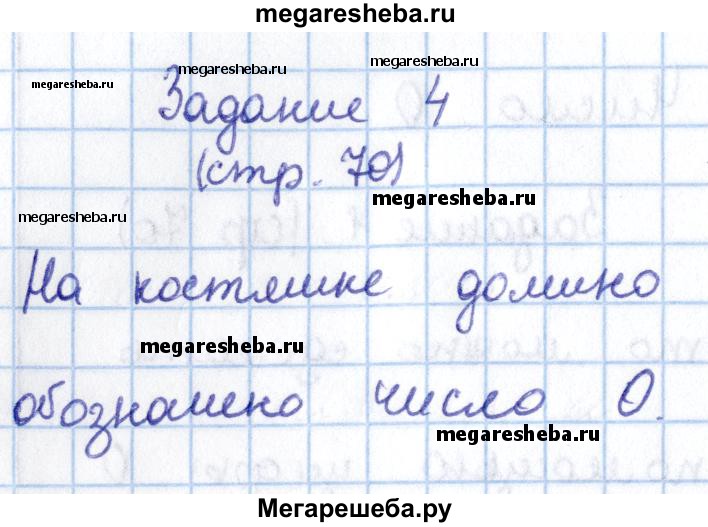 megaresheba.ru
megaresheba.ru
megaresheba.ru
megaresheba.ru
Задание 4
(стр. 70)
megaresheba.ru
megaresheba.ru
На костяшке домино
megaresheba.ru
обозначено число 0.
megaresheba.ru
Мегарешеба.ру